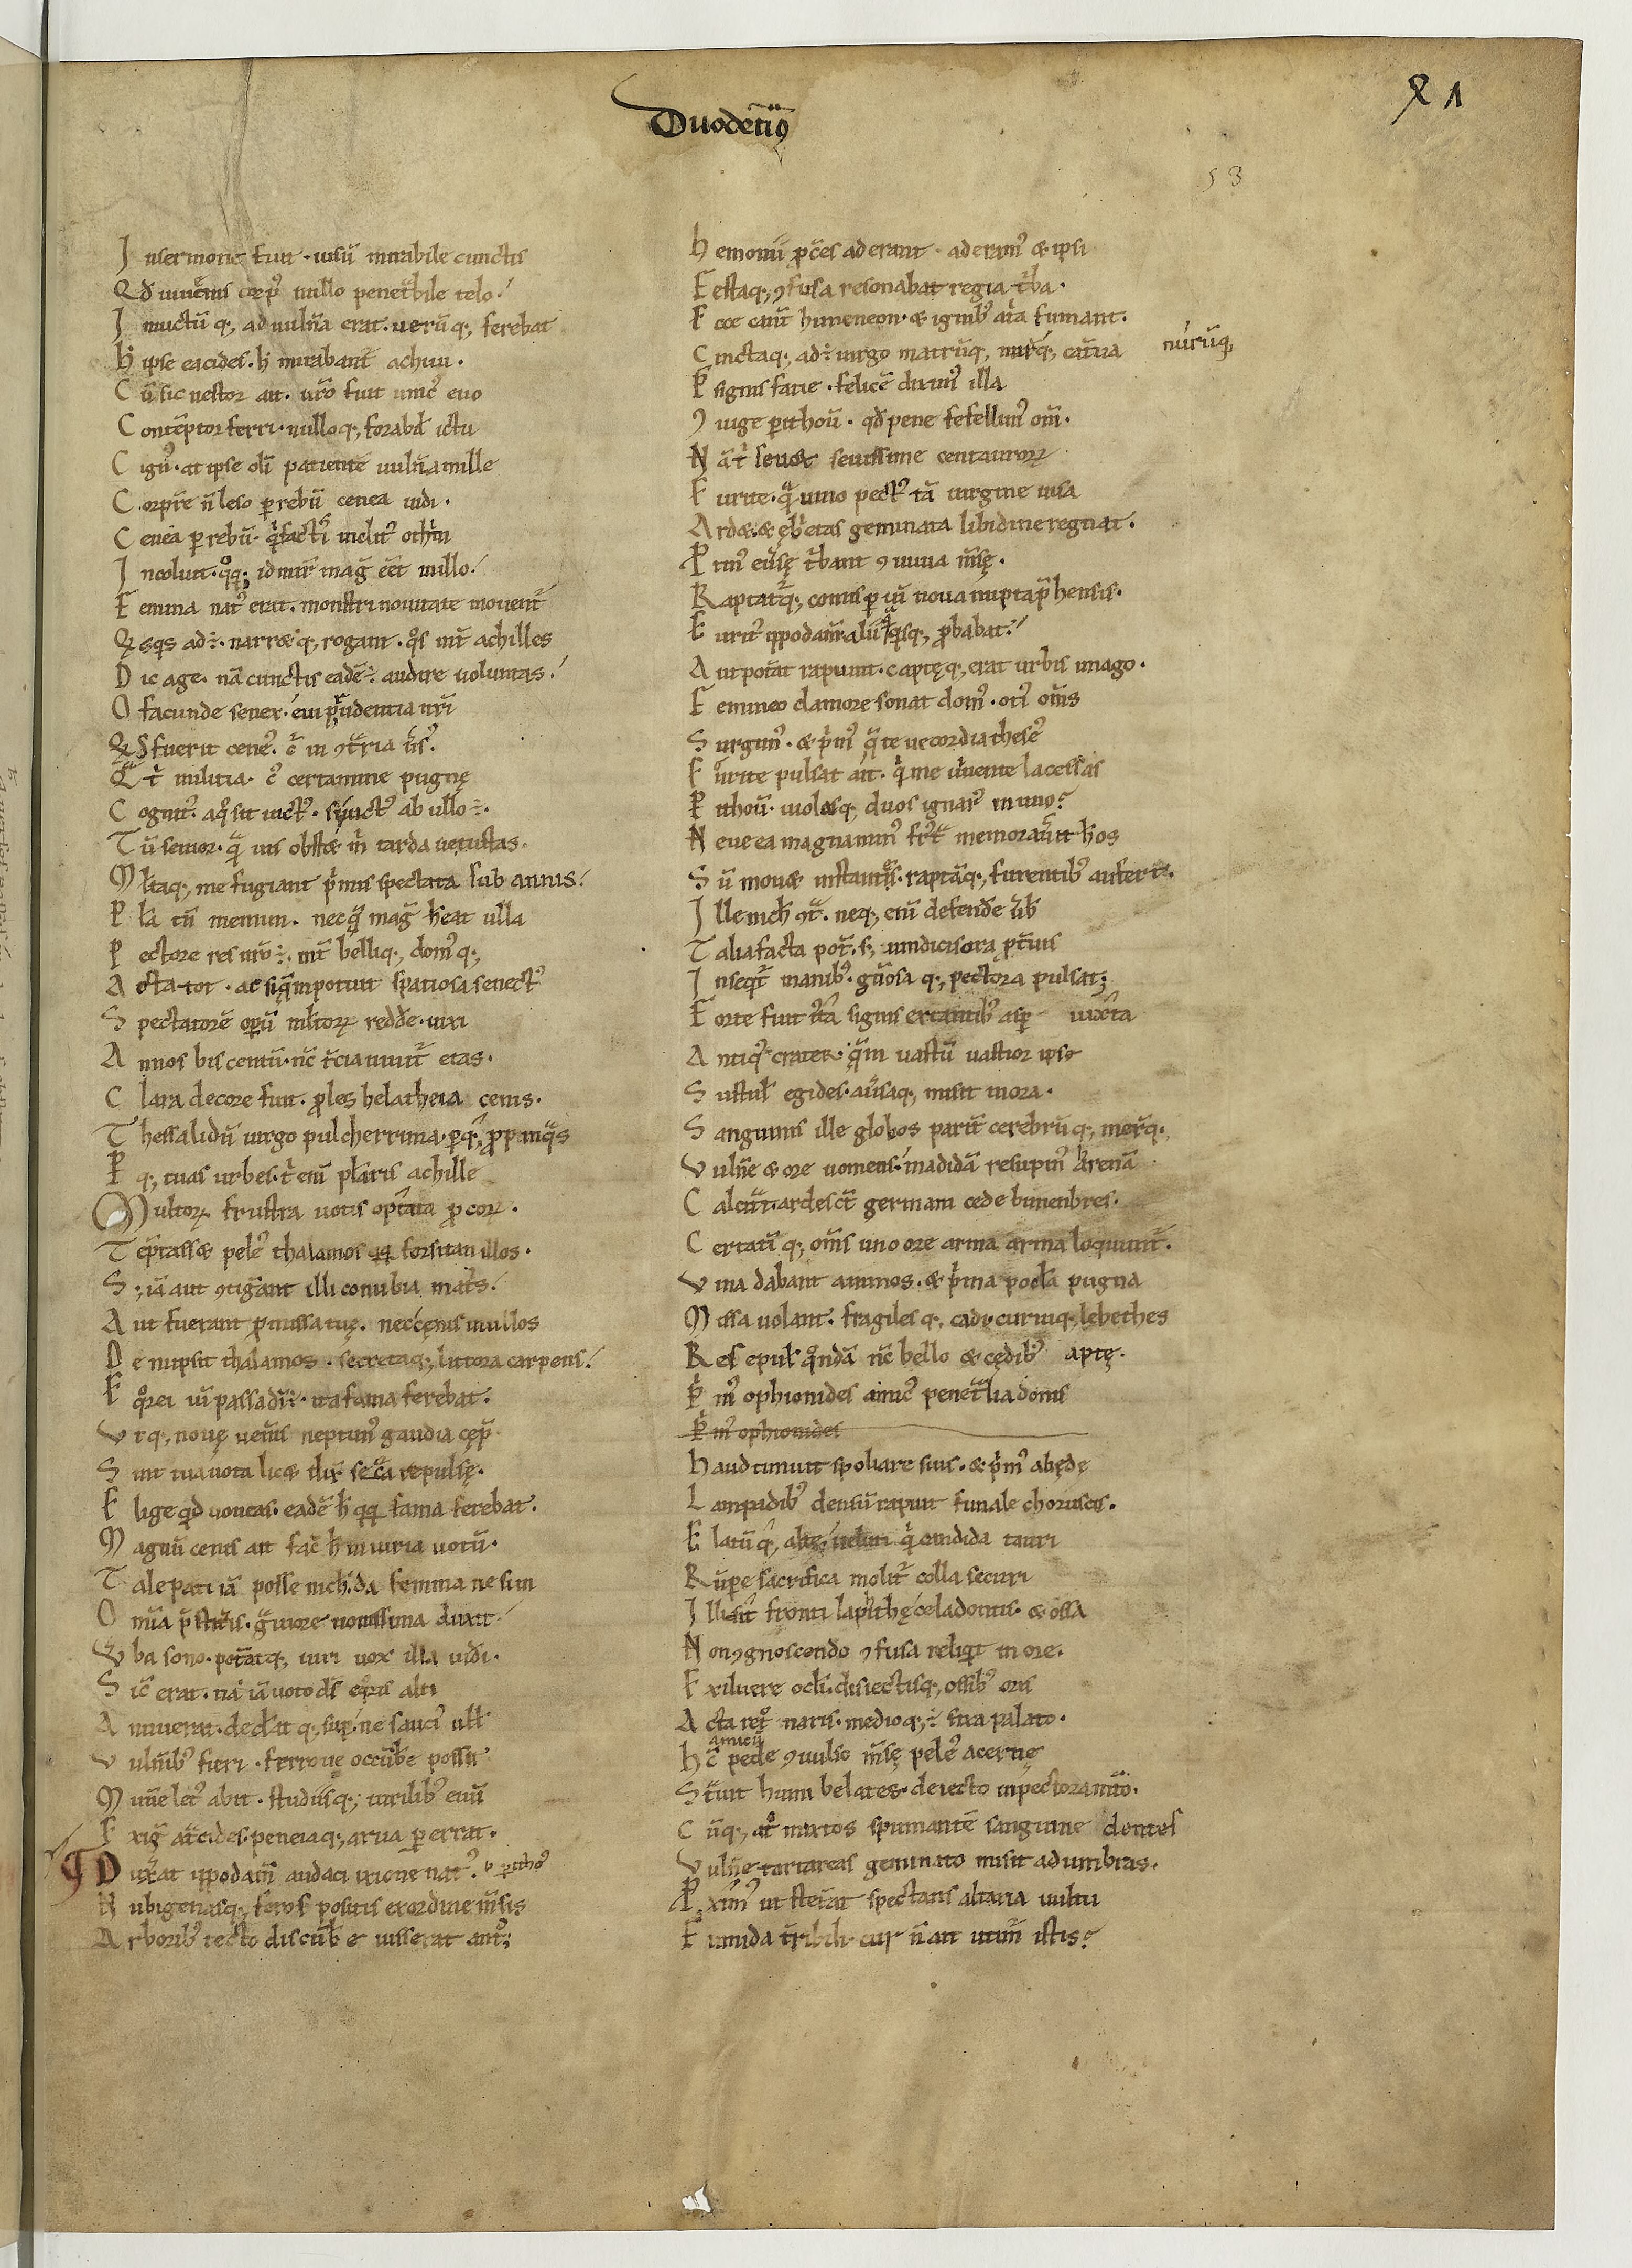 Duodetiꝰ
R 1
53
J nsermone fuit · uisū mirabile cunctis
Qđ iuueniſ corpꝰ nullo penetbile telo ·
J nuictū q; ad uulna erat · uerū q; ferebat
h̄ ipse eacides · h̄ mirabant̄ achiui ·
C ū sic nestor ait · uro fuit unicꝰ euo
C ontēptor ferri · nulloq; forabił ictu
C ignꝰ · at ipse oli patiente uulna mille
C orpre n̄ leso ꝑrebū cenea uidi ·
C enea ꝑrebū · q̇ factis inclitꝰ othrin
J ncoluit · qͦq; id mir̄ mag̃ eēt illo ·
F emina natꝰ erat · monstri nouitate mouent̄
Qͥsqs ad÷ · narretq; rogant · qͦs int̄ achilles
D ic age · nā cunctis eadē÷ audire uoluntas ·
O facunde senex · eui prudentia nri
Qͥs fuerit ceneꝰ · c̄ in ꝯt̃ria uꝰsꝰ ·
Qͣ t̄ militia · cꝰ certamine pugnę
C ognitꝰ · aqͦ sit uictꝰ · si uictꝰ ab ullo÷ ·
T ū senior · qͣuis obstet m̄ tarda uetustas ·
M ltaq; me fugiant pͥmis spectata sub annis ·
P lͣa tn̄ memini · necqͣ mag̃ hēat ulla
P ectore res nro÷ · int̄ belliq; domiq;
A cta tot · ac siquē potuit spatiosa senectꝰ
S pectatorē oꝑū mltoꝝ redde · uixi
A nnos bis centū · nc̄ t̄cia uiuit̄ etas ·
C lara decore fuit · ꝓles helatheia cenis ·
T hessalidū uirgo pulcherrima · ꝑq; ꝓpinqͣs
P q; tuas urbes · t̄ eni pͥlaris achille
M ultoꝝ frustra uotis optata ꝓcoꝝ ·
T ēptasset peleꝰ thalamos qͦq; forsitan illos ·
S ; iā aut ꝯtigant illi conubia matͥs ·
A ut fuerant ꝓmissa tuę · nec cęnis in ullos
D e nupsit thalamos · secretaq; littora carpens ·
E qͦrei uī passa dī÷ · ita fama ferebat ·
V tq; nouę uenis neptunꝰ gaudia cęp̄
S int tua uota licet dix̄ secͣa repulsę ·
E lige qͥd uoueas · eadē h̄ qq; fama ferebat ·
M agnū cenis ait fac̄ h̄ iniuria uotū ·
T ale pati iā posse nich · da femina ne sim
O mia p̄stiteris · gͣuiore nouissima dixit
V ba sono · poteratq; uiri uox illa uidi ·
S ic̄ erat · nā iā uoto dſ eqͦris alti
A nnuerat · dedit q; sup ne sauciꝰ ullͥ
V ulnibꝰ fieri · ferroue occūbe possit
M une letꝰ abit · studiisq; uirilibꝰ euū
E xig̃ at̃cides · peneiaq; arua ꝑerrat ·
D uxͣat ypodam̄ audaci ixione natꝰ · v̄ ꝑithoꝰ
N ubigenasq; feros positis exordine mensis
A rboribꝰ tecto discūbe iusserat antͦ;
h emonii ꝓces aderant · aderamꝰ et ipsi
F estaq; ꝯfusa resonabat regia tͥba ·
E cce canūt himeneon · et ignibꝰ atͥa fumant ·
C inctaq; ad÷ uirgo matrūq; nurūq; cat̃ua nurūq;
P̄ signis facie · felicē diximꝰ illa
ꝯ iuge ꝑithoū · qđ pene fefellimꝰ om̄ ·
N ā t̄ seuoꝝ seuissime centauroꝝ
E urite · qͣ uino pectꝰ tā uirgine uisa
A rdet · et ębͥetas geminata libidine regnat ·
P̄ tinꝰ eūsę tͥbant ꝯuiuia msę ·
R aptat̄q; comis ꝑ uī noua nupta p̄hensis ·
E uritꝰ ypodam̄ · alii qͣ qͥsq; ꝓbabat ·
A ut potāt rapiunt · captęq; erat urbis imago ·
F emineo clamore sonat domꝰ · otiꝰ om̄s
S urgimꝰ · et pͥmꝰ qͣ te uecordia theseꝰ
E urite pulsat ait · qͥ me uiuente lacessas
P ithoū · uiolesq; duos ignarꝰ in uno?
N eue ea magnanimꝰ frͣ memorauit hos
S ū mouet instantes · raptāq; furentibꝰ aufert ·
J lle nich ꝯtͣ · neq; enī defende ūb
T alia facta pot̄ · s; uindicis ora ꝓt̄uis
J nseqͥt̄ manibꝰ · gn̄osa q; pectora pulsat;
F orte fuit iuxta signis extantibꝰ asꝑ iuxta
A ntiqꝰ crater · qͣm uastū uastior ipse
S ustulit egides · aūsaq; misit in ora ·
S anguinis ille globos parit̄ cerebrūq; merūq;
V ulne et ore uomens · madida resupinꝰ harena
C alcitͣt · ardescūt germani cede bimenbres ·
C ertatī q; om̄s uno ore arma arma loquunt̄ ·
V ina dabant animos · et pͥma pocla pugna
M issa uolant · fragilesq; cadi · curuiq; lebethes
R es epulis qͦndā nc̄ bello et cędibꝰ aptę ·
Pͥ mꝰ ophionides amicꝰ penetͣlia donis
Pͥ mꝰ ophionides
h aud timuit spoliare suis · et pͥmꝰ abędę
L ampadibꝰ densū rapuit funale choruscis ·
E latū q; alte ueluti qͥ candida tauri
R ūꝑe sacrifica molit̄ colla securi
J llisit fronti lapithę celadontis · et ossa
N on ꝯgnoscendo ꝯfusa reliqͥt in ore ·
E xiluere ocli · disiectisq; ossibꝰ oris
A cta retͦ naris · medioq; ÷ fixa palato ·
h c̄ pede ꝯuulso msę peleꝰ acernę
S tͣuit humi belates · deiecto inpectora mto ·
C ūq; atͦ mixtos spumantē sanguine dentes
V ulne tartareas geminato misit ad umbras ·
P̄ ximꝰ ut stetͣat spectans altaria uultu
F umida tͥribili · cur n̄ ait utim̄ istis?